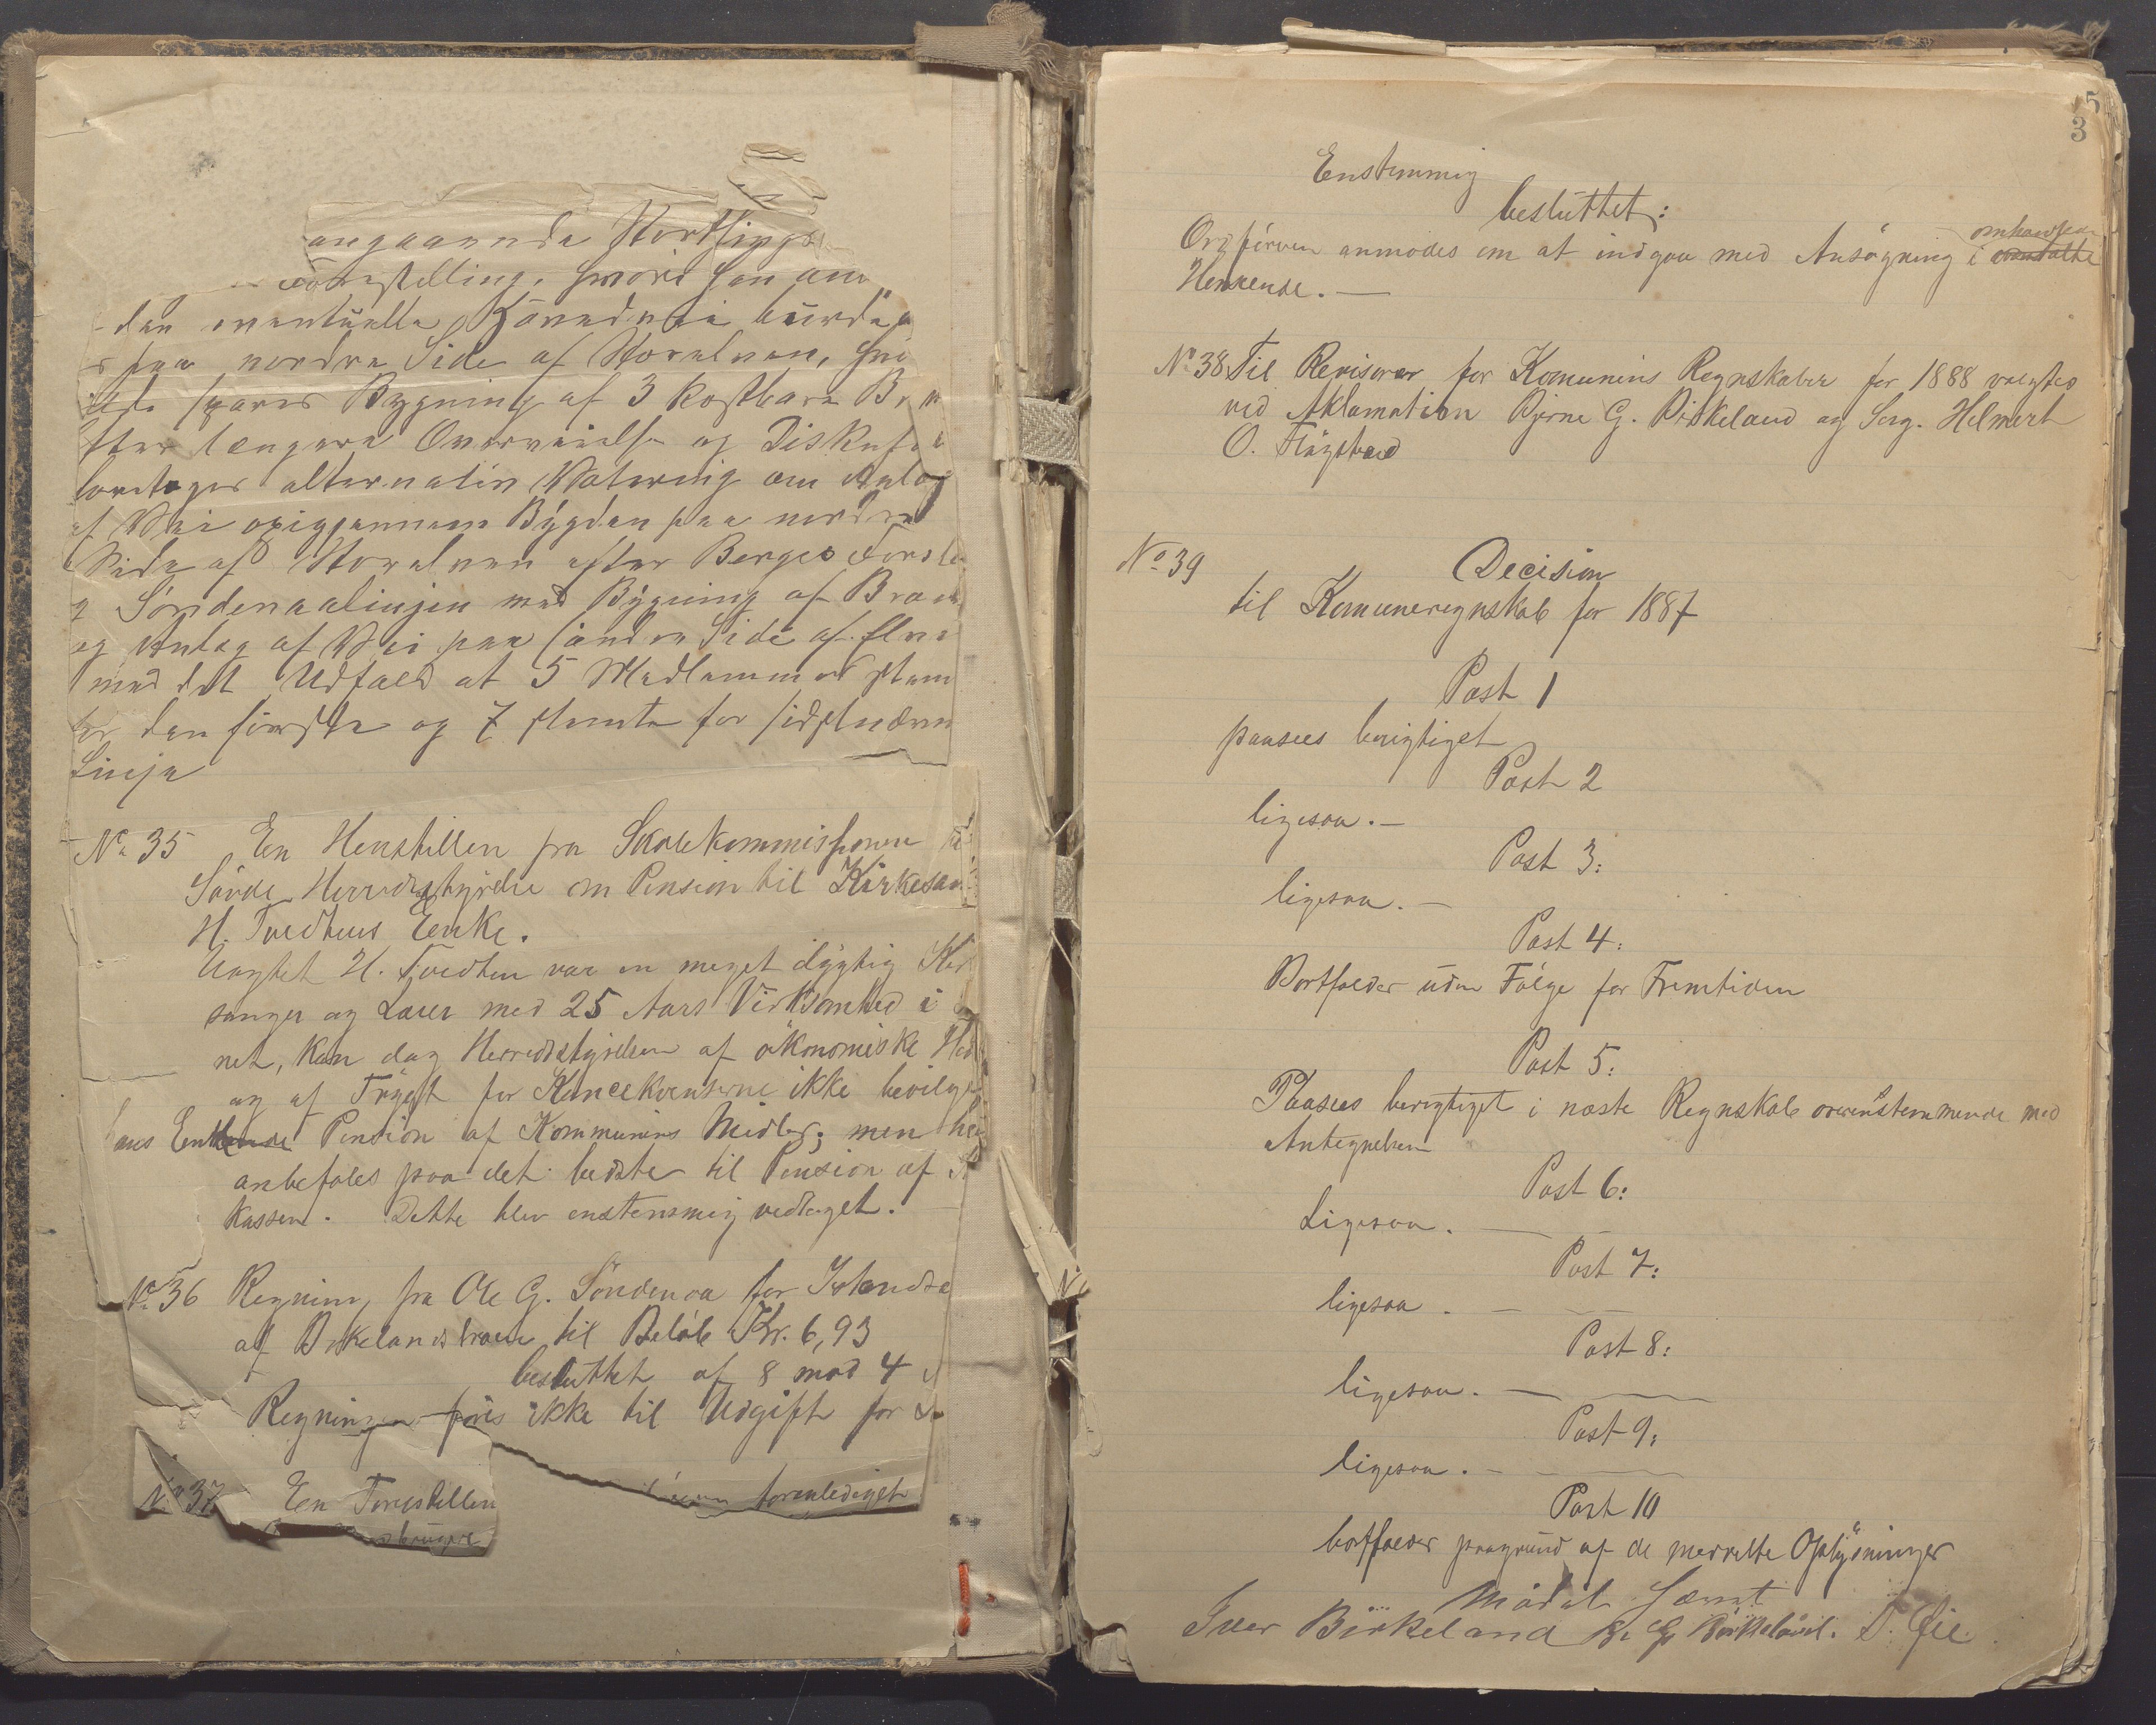 angaaende Storthings
Forestilling, hvori han an
den eventuelle Hovedvei burde
paa nordre Side af Storelven, hvi
spares Bygning af 3 kostbare Br
fter længere Overveielse og Diskus
foretoges alternativ Votering om Anlæg
af Vei opigjennem Bygden paa nordre
Side af Storelven efter Berges Forsla
Söndenaalinjen med Bygning af Broen
og Anlæg af Vei paa söndre Side af Elve
med det Udfald at 5 Medlemmer stem
for den första og 7 stemte for sidstnævn
Linje
No 35 En Henstillen fra Skolekommissionen
Sövde Herredsstyrelse om Pension til Kirkesan
H. Tvedtens Enke.
Uagtet H. Tvedten var en meget dygtig Kir
sanger og Lærer med 25 Aars Virksomhed i
net, kan dog Herredsstyrelsen af ökonomiske He
og af Frygt for Koncekventserne ikke bevilge
hans Enke Pension af Kommunens Midler; men
anbefales paa det bedste til Pension af
kassen. Dette blev enstemmig vedtaget.
No 36 Regning fra Ole G. Söndenaa for Istandsæ
af Birkelandsbroen til Belöb Kr. 6,93
besluttet af 8 mod 4
Regningen föres ikke til Udgift for
No 37 En Forestillen
foranlediget
5
3
Enstemmig
besluttet:
Ordföreren anmodes om at indgaa med Ansögning i omtalte
omhandlede
Henseende. —
No 38 Til Revisorer for Komunens Regnskaber for 1888 valgtes
ved Aklamation Bjerne G. Birkeland og Serg. Helmert
O. Flögstad
No 39 Decision
til Komuneregnskab for 1887
Post 1
paasees berigtiget
Post 2
ligesaa. —
Post 3:
ligesaa. —
Post 4:
Bortfalder uden Fölge for Fremtiden
Post 5:
Paasees berigtiget i næste Regnskab overensstemmende med
Antegnelsen
Post 6:
Ligesaa. —
Post 7:
ligesaa. —
Post 8:
ligesaa. —
Post 9:
ligesaa. —
Post 10
bortfalder paagrund af de meddelte Oplysninger
Mödet hævet
Iver Birkeland B. G. Birkeland. S. Öie